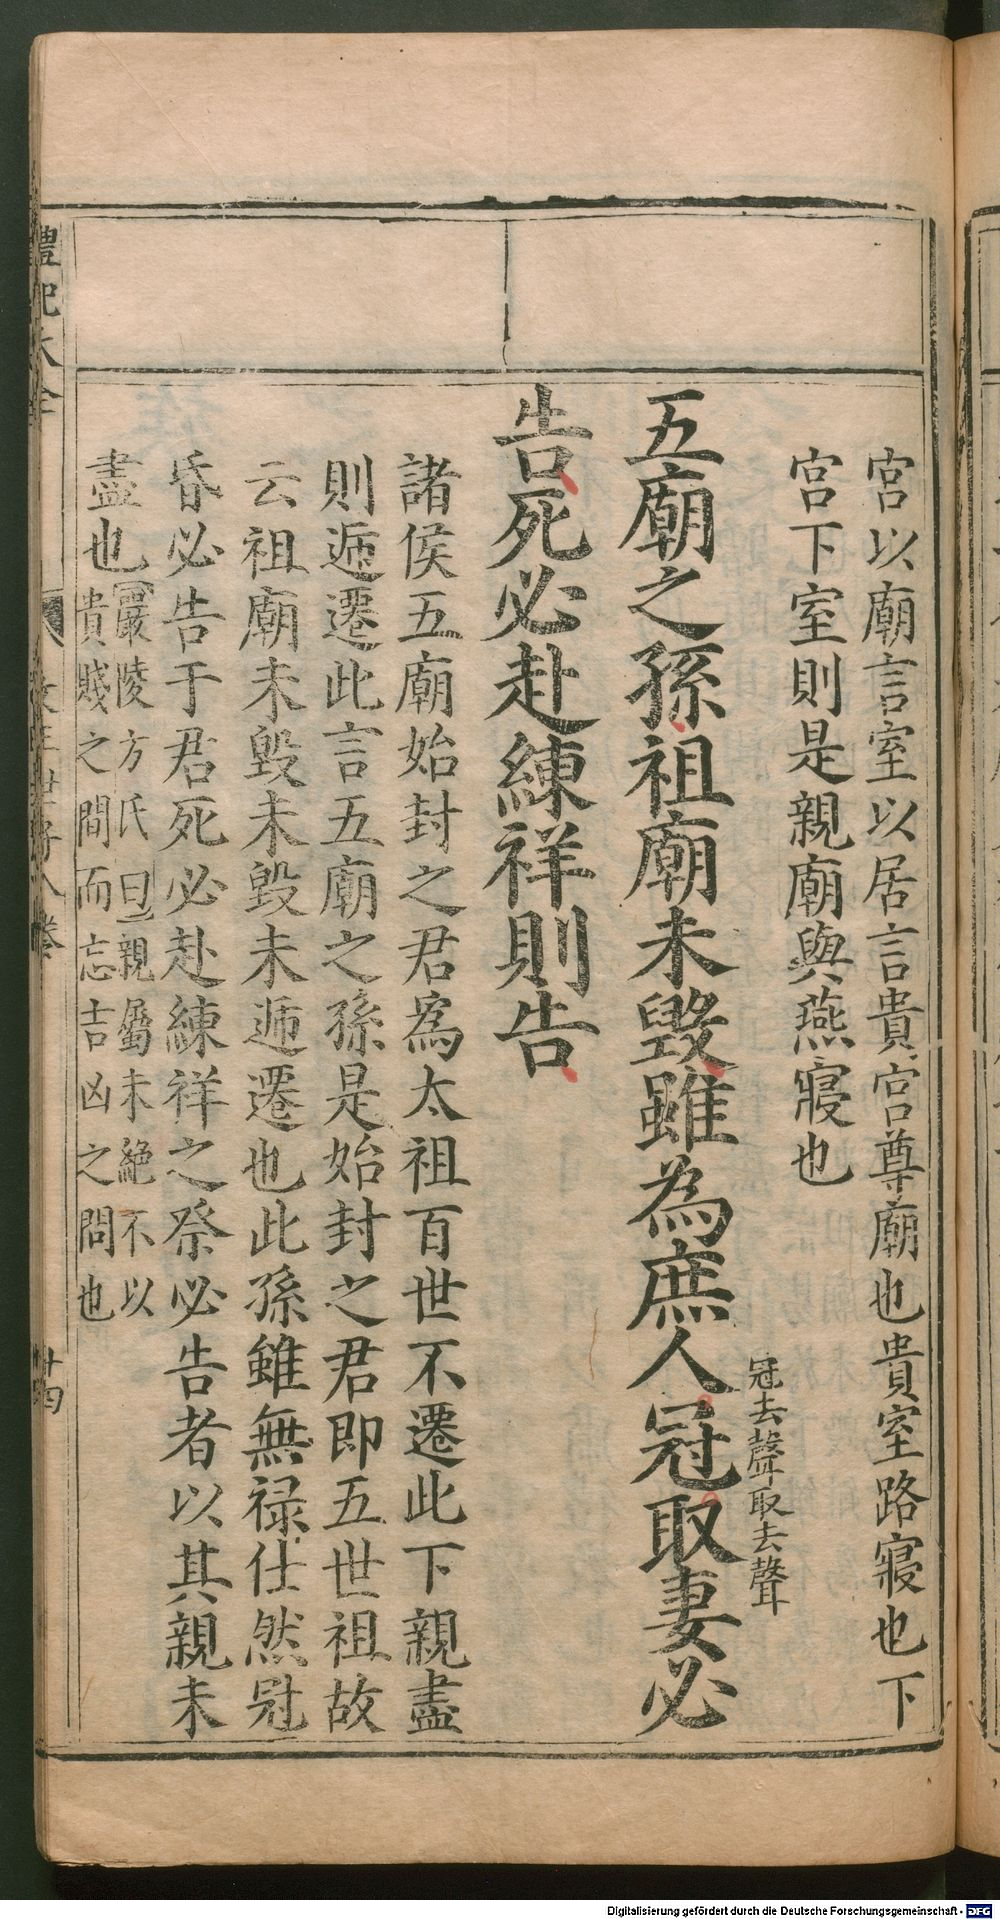 宮以廟言室以居言貴宮尊廟也貴室路寢也下
宮下室則是親廟與燕寢也
五廟之孫祖廟未毀雖為庶人冠取妻必
冠去聲取去聲
告死必赴練祥則告
諸侯五廟始封之君為太祖百世不遷此下親盡
則遞遷此言五廟之孫是始封之君即五世祖故
云祖廟未毀未毀未遞遷也此孫雖無祿仕然冠
昏必告于君死必赴練祥之祭必告者以其親未
盡也
嚴陵方氏曰親屬未絕不以
貴賤之間而忘吉凶之問也
禮記大全
文王世子八卷
廿四
Digitalisierung gefördert durch die Deutsche Forschungsgemeinschaft - DFG